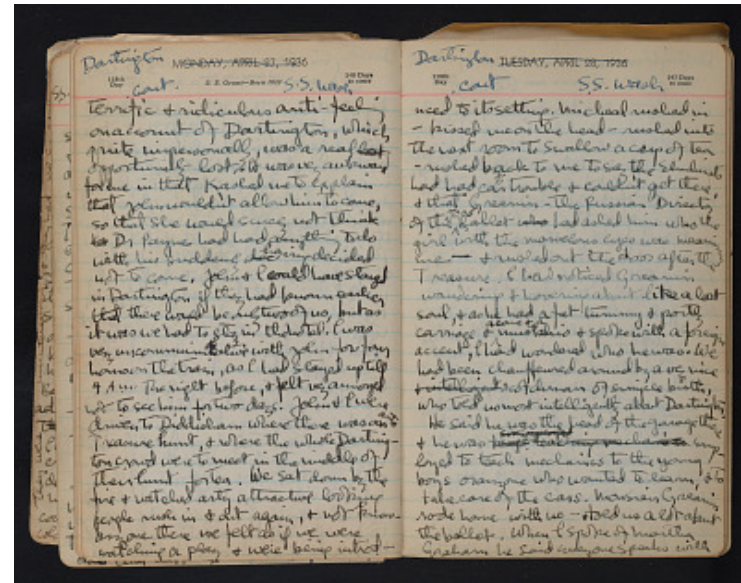 Dartington
MONDAY, APRIL 27, 1936
cont. S.S. Wash
terrific & ridiculous anti-feeling
on account of Dartington, which
quite impersonally, was a real lost
opportunity lost, it was very awkward
for me in that asked me to explain
that wouldn't allow him to come,
so that she would surely not think
Dr Payne had had anything to do
with his having decided
not to come. John & I could have stayed
in Dartington if they had known earlier
that there would be only two of us, but as
it was we had to stay in the hotel. I was
very uncommunicative with John for four
hours on the train, as I had stayed up till
4 A.M. the night before, & felt very annoyed
not to see him for two days. John & I were
driven to where there was a
Treasure hunt, & where the whole Darting-
ton crowd were to meet in the middle of
their hunt for tea. We sat down by the
fire & watched arty attractive looking
people rush in & out again, & not know-
ing anyone there we felt as if we were
watching a play & were being introd-
Dartington
TUESDAY, APRIL 28, 1936
cont S.S. Wash
uced to its setting. Micheal rushed in
- kissed me on the head - rushed into
the next room to swallow a cup of tea
- rushed back to me to say the
had had car trouble & couldn't get there
& that the Russian Director
of the ballet had asked him who the
girl with the marvelous eyes was meaning
me - & rushed out the door after the
Treasure. I had noticed
wandering & hovering about like a lost
soul, & as he had a fat tummy & portly
carriage & & spoke with a foreign
accent, I had wondered who he was. We
had been chauffeured around by a very nice
& intelligent Irishman of birth,
who talked most intelligently about Dartington.
He said he was the head of the garage there
& he was emp-
loyed to teach mechanics to the young
boys or anyone who wanted to learn, & to
take care of the cars.
rode home with us - & told us a lot about
the ballet. When I spoke of Martha
Graham he said everyone speaks with